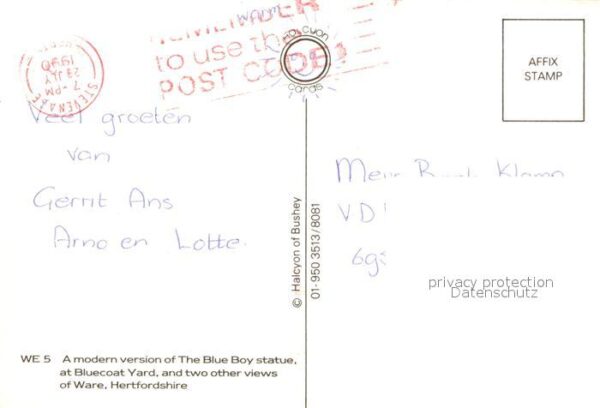 REMEMBER
to use the
POST CODE
STEVENAGE
7 - PM
23 JLY
1990
Halcyon
cards
AFFIX
STAMP
Veel groeten
van
Gerrit Ans
Arno en Lotte.
VD
privacy protection
Datenschutz
© Halcyon of Bushey
01-950 3513/8081
WE 5 A modern version of The Blue Boy statue,
at Bluecoat Yard, and two other views
of Ware, Hertfordshire